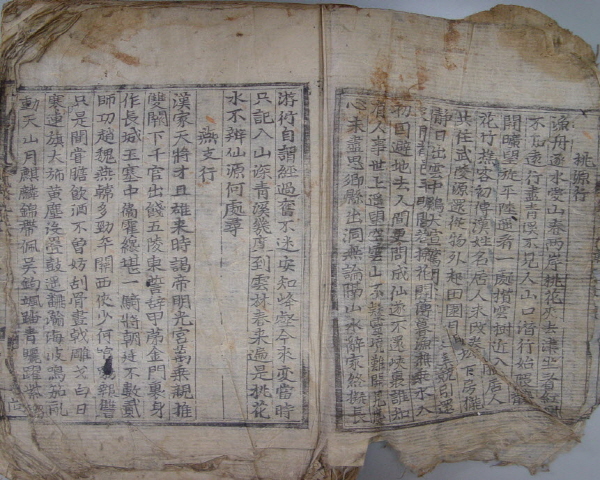 桃源行
漁舟逐水愛山春兩岸桃花夾去津坐看紅
不知遠行盡青溪不見人山口潛行始隈
開曠望旋平陸遙看一處攢雲樹近入
花竹樵客初傳漢姓名居人未改秦居人
共住武陵源還從物外起田園月下房櫳
靜日出雲中鷄喧驚聞競引還
明閭巷掃花開薄暮漁樵乘水入
初因避地去人間更問成仙遂不還峽裏誰知
有人事世上遙望空雲山不疑靈境難聞見塵
心未盡思鄉縣出洞無論隔山水辭家終擬長
游衍自謂經過舊不迷安知峰壑今來變當時
只記入山深青溪幾度到雲林春來遍是桃花
水不辨仙源何處尋
燕支行
漢家天將才且雄來時謁帝明光宮萬乘親推
雙闕下千官出餞五陵東誓辭甲第金門裏身
作長城玉塞中衛霍纔堪一騎將朝廷不數貳
師功趙魏燕韓多勁卒關西俠少何咆勃報讐
只是聞嘗膽飲酒不曾妨刮骨畫戟雕戈白日
寒連旗大旆黃塵沒疊鼓遙翻瀚海波鳴笳亂
動天山月麒麟錦帶佩吳鉤颯踏青驪躍紫